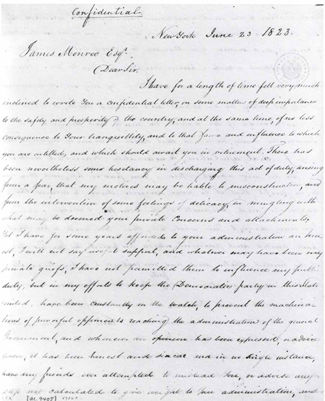 Confidential
New York June 23 1823.
James Monroe Esqr.
Dear Sir
I have for a length of time felt very much
inclined to write you a confidential letter, on some matters of deep importance
to the safety and prosperity of the country, and at the same time, of no less
consequence to your tranquillity, and to that fame and influence to which
you are entitled, and which should await you in retirement. There has
been nevertheless some hesitancy in discharging this act of duty, arising
from a fear, that my motives may be liable to misconstruction, and
from the intervention of some feelings of delicacy, in mingling with
what may be deemed your private concerns and attachments.
I have for some years afforded to your administration an hon
est, I will not say support, and whatever may have been my
private griefs, I have not permitted them to influence my public
duty, but in my efforts to keep the Democratic party in this State
united, have been constantly on the watch, to prevent the machina
tions of powerful opponents reaching the administration of the general
Government, and whenever an opinion has been expressed,
it has been honest and sincere and in no single instance,
have my friends ever attempted to mislead you, or advise any
step not calculated to give weight to your administration, and